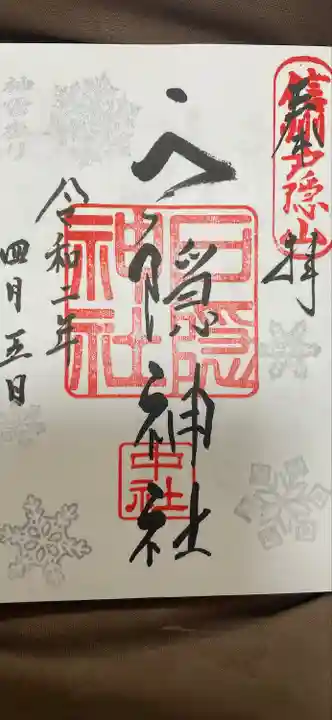 奉拝
信州戸隠山
戸隠神社
戸隠
神社
中社
令和二年
四月五日